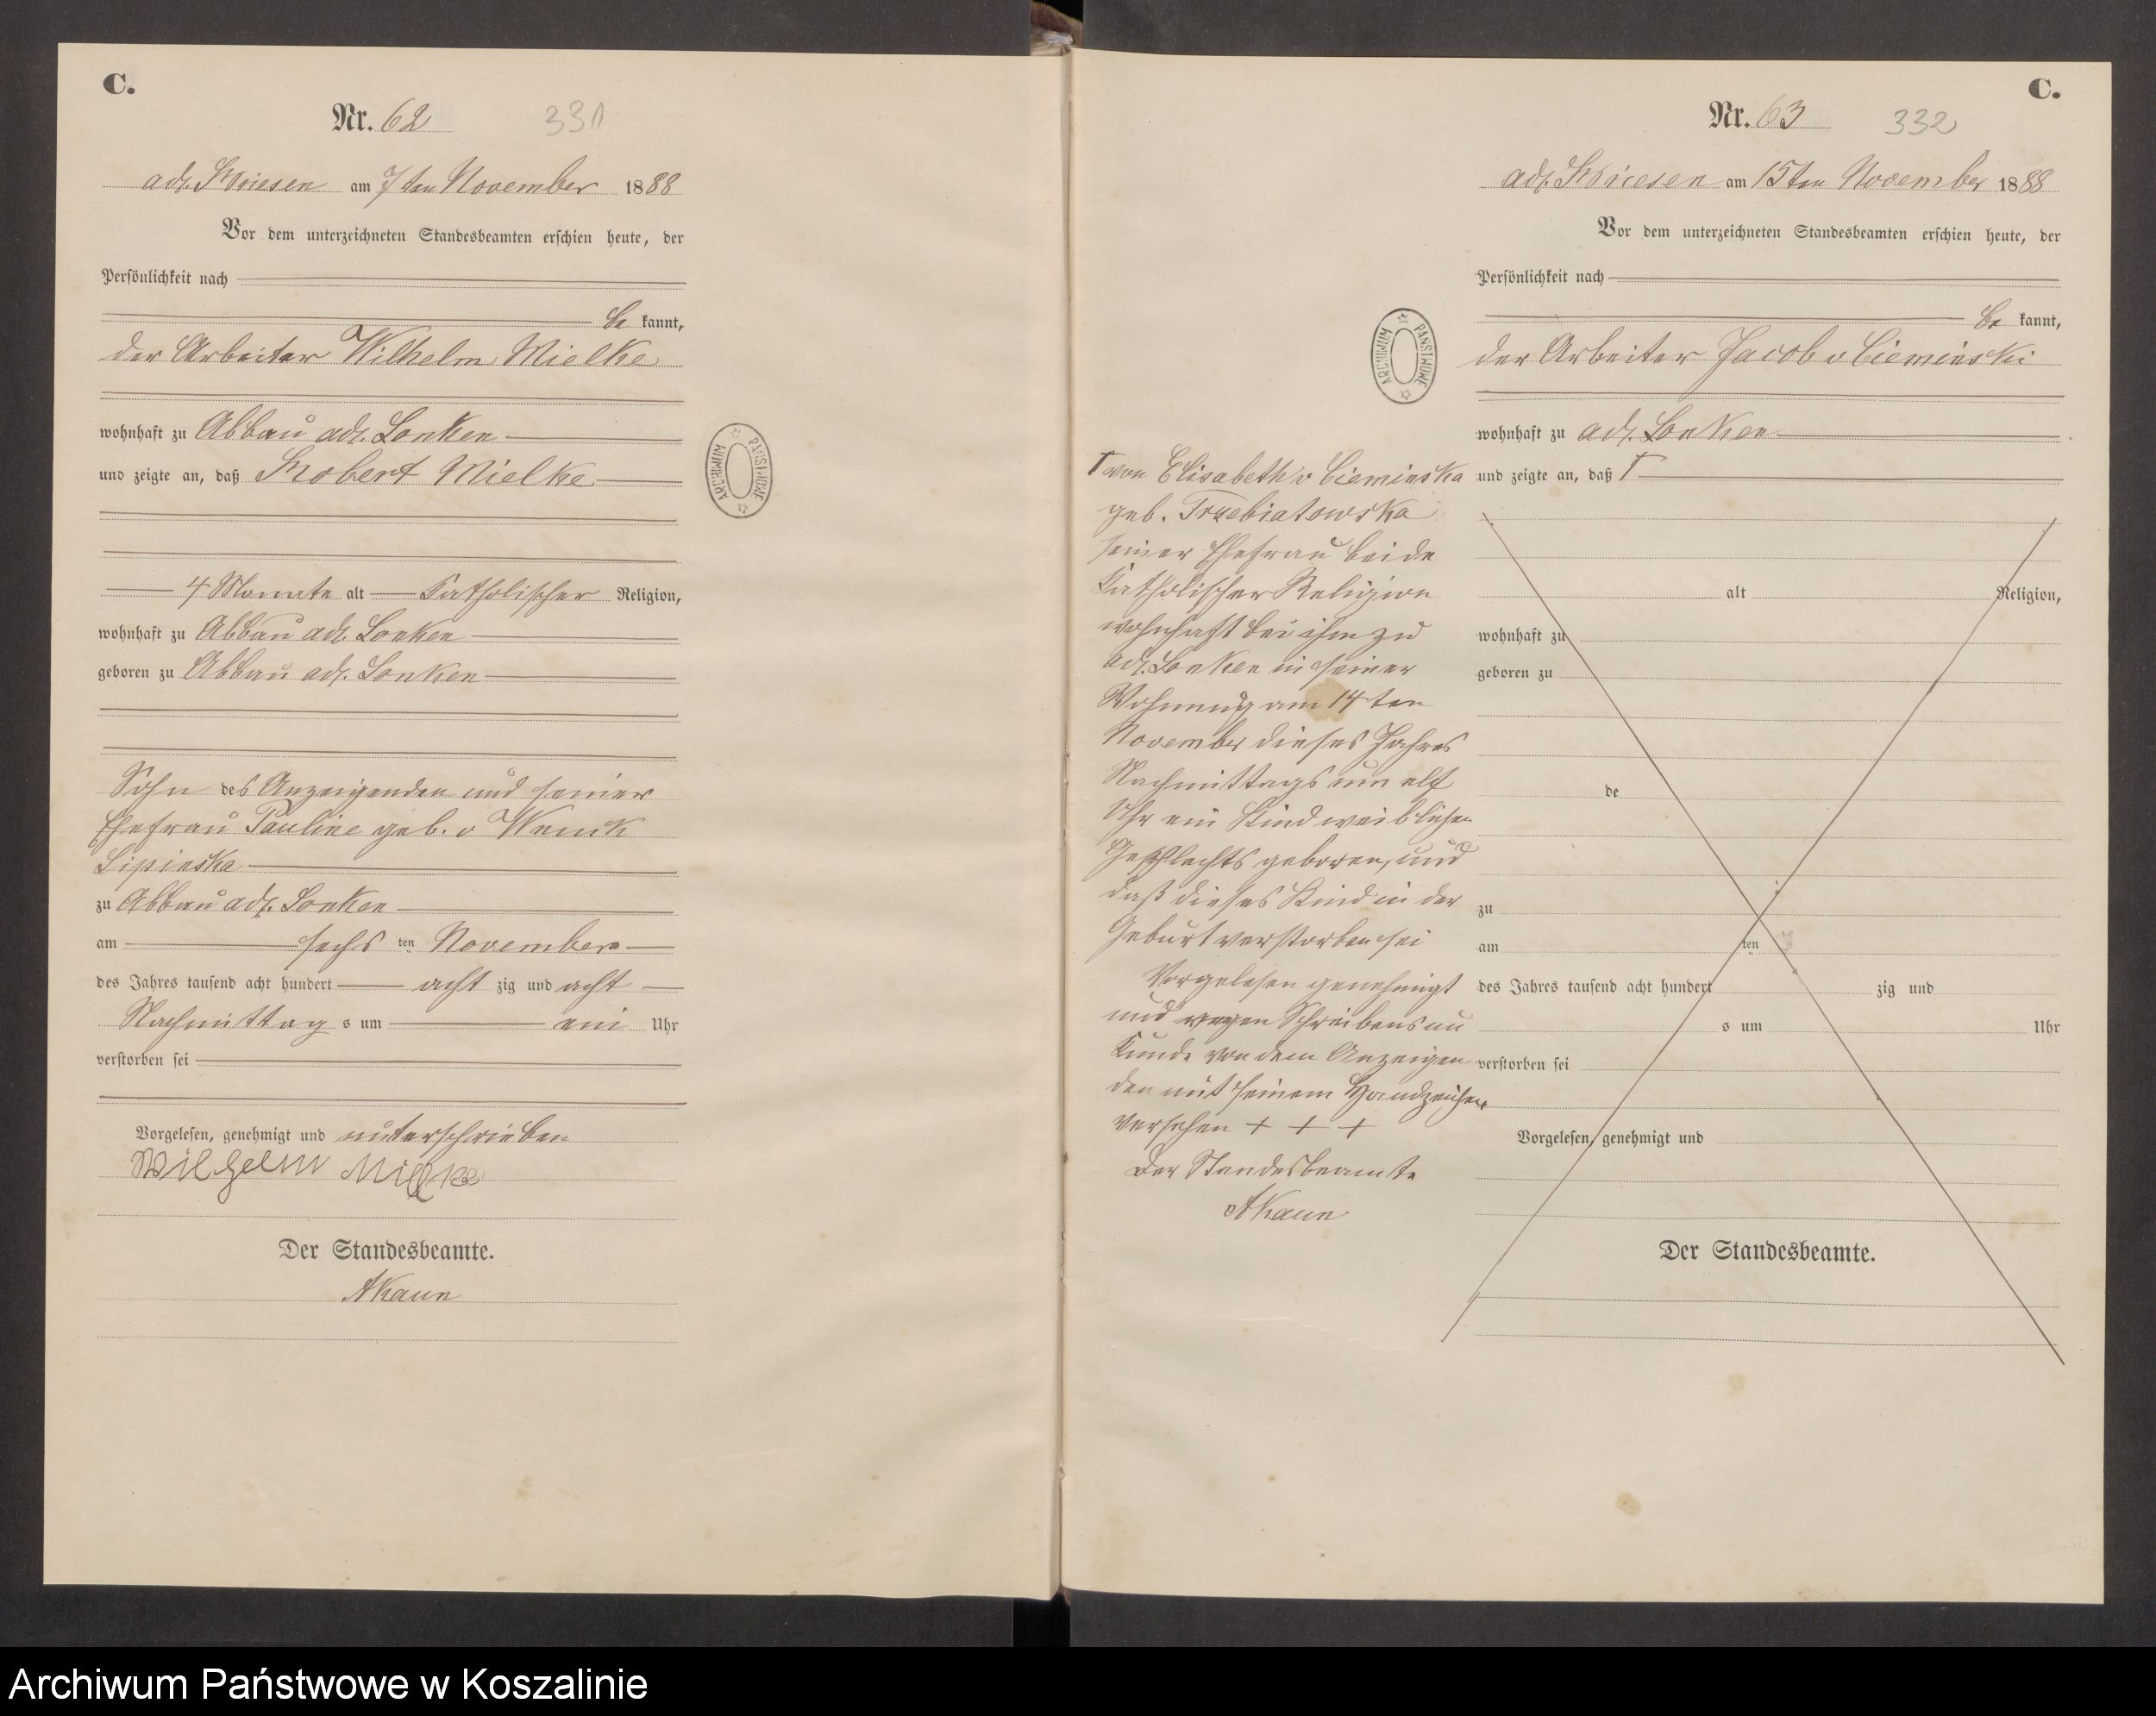 C.
Nr. 62 331
adl. Briesen am 7ten November 1888
Vor dem unterzeichneten Standesbeamten erschien heute, der
Persönlichkeit nach
be kannt,
der Arbeiter Wilhelm Mielke
wohnhaft zu Abbau adl. Lonken
und zeigte an, daß Robert Mielke
4 Monate alt Katholischer Religion,
wohnhaft zu Abbau adl. Lonken
geboren zu Abbau adl. Lonken
Sohn des Anzeigenden und seiner
Ehefrau Pauline geb. v Wenck
Lipinska
zu Abbau adl. Lonken
am sechs ten November
des Jahres tausend acht hundert acht zig und acht
Nachmittag s um ein Uhr
verstorben sei
Vorgelesen, genehmigt und unterschrieben
Wilhelm Mielke
Der Standesbeamte.
AKaun
ARCHIWUM PAŃSTWOWE
C.
Nr. 63 332
adl. Briesen am 15ten November 1888
Vor dem unterzeichneten Standesbeamten erschien heute, der
Persönlichkeit nach
be kannt,
der Arbeiter Jacob v Cieminski
wohnhaft zu adl. Lonken
und zeigte an, daß Γ
alt Religion,
wohnhaft zu
geboren zu
de
zu
am ten
des Jahres tausend acht hundert zig und
s um Uhr
verstorben sei
Vorgelesen, genehmigt und
Der Standesbeamte.
ARCHIWUM PAŃSTWOWE
Γ von Elisabeth v Cieminska
geb. Trzebiatowska
seiner Ehefrau beide
Katholischer Religion
wohnhaft bei ihm zu
adl. Lonken in seiner
Wohnung am 14ten
November dieses Jahres
Nachmittags um elf
Uhr ein Kind weiblichen
Geschlechts geboren, und
daß dieses Kind in der
Geburt verstorben sei
Vorgelesen genehmigt
und wegen Schreibensun
kunde von dem Anzeigen
den mit seinem Handzeichen
versehen + + +
Der Standesbeamte
AKaun
Archiwum Państwowe w Koszalinie